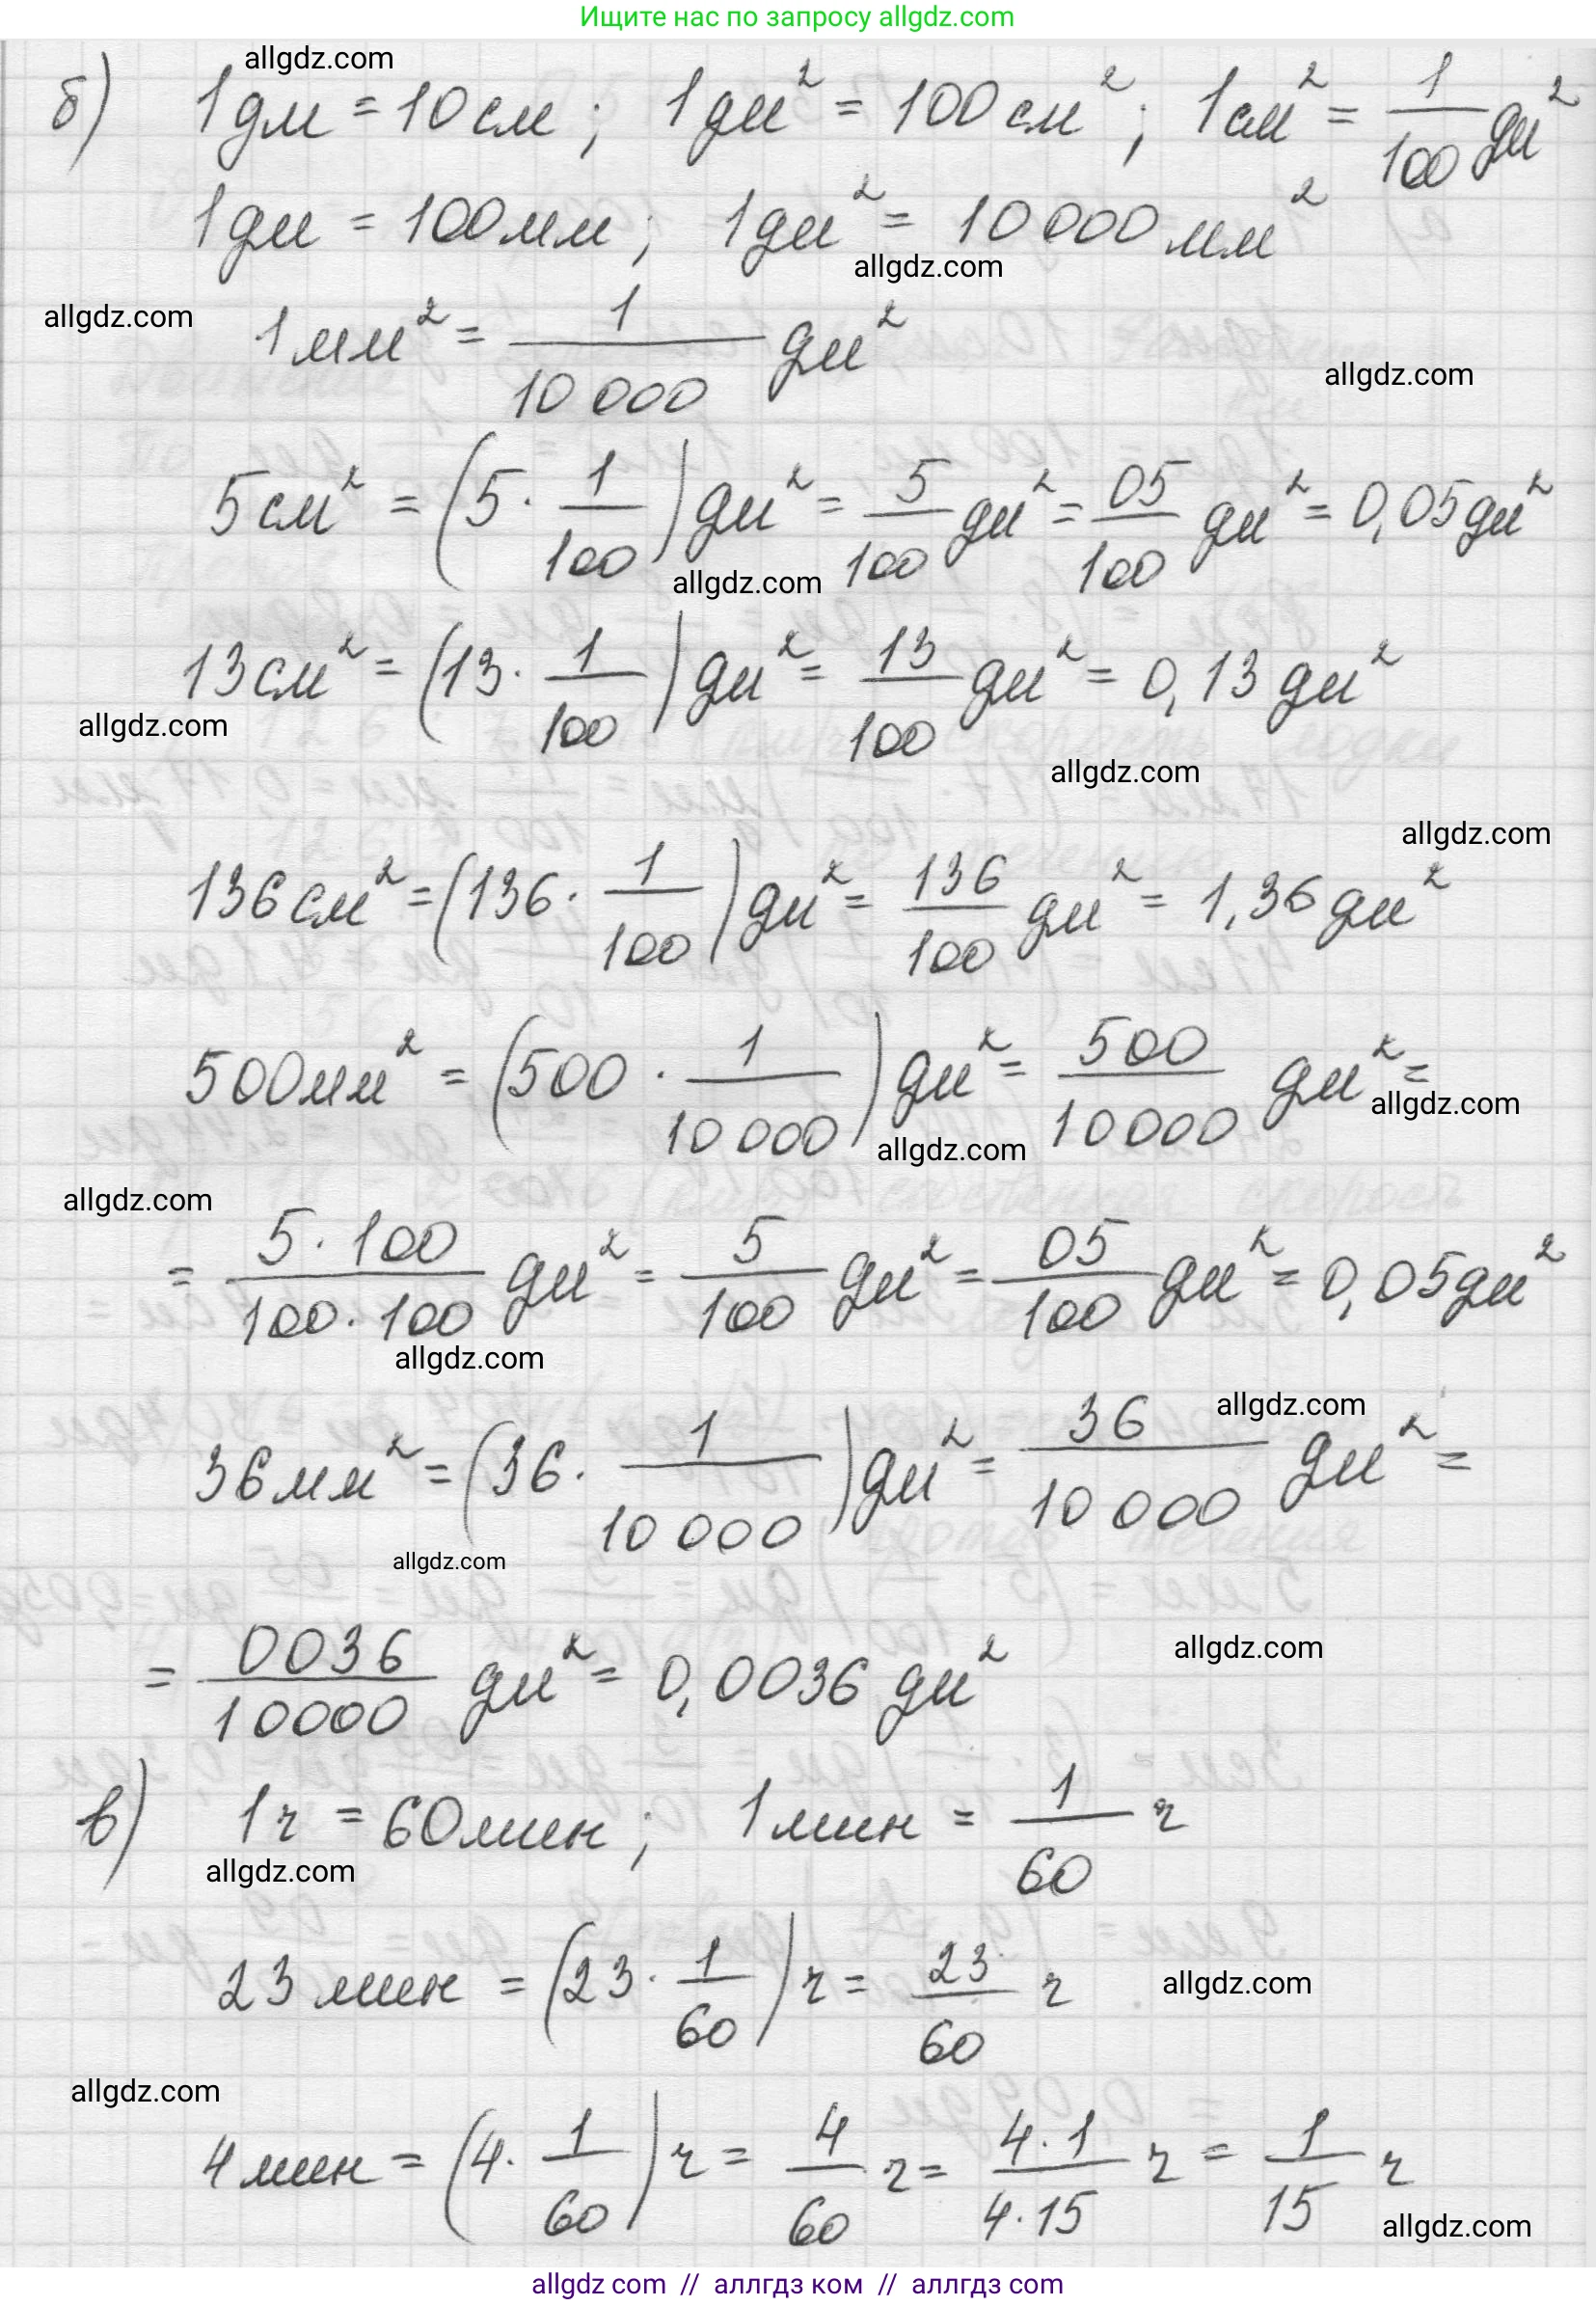 Ищите нас по запросу allgdz.com
allgdz.com
б) 1 дм = 10 см ; 1 дм² = 100 см² ; 1 см² = 1/100 дм²
1 дм = 100 мм ; 1 дм² = 10 000 мм²
allgdz.com
allgdz.com
1 мм² = 1/10 000 дм²
allgdz.com
5 см² = (5 · 1/100) дм² = 5/100 дм² = 05/100 дм² = 0,05 дм²
allgdz.com
13 см² = (13 · 1/100) дм² = 13/100 дм² = 0,13 дм²
allgdz.com
allgdz.com
allgdz.com
136 см² = (136 · 1/100) дм² = 136/100 дм² = 1,36 дм²
500 мм² = (500 · 1/10 000) дм² = 500/10000 дм² =
allgdz.com
allgdz.com
allgdz.com
= 5 · 100/100 · 100 дм² = 5/100 дм² = 05/100 дм² = 0,05 дм²
allgdz.com
allgdz.com
36 мм² = (36 · 1/10 000) дм² = 36/10 000 дм² =
allgdz.com
= 0036/10000 дм² = 0,0036 дм²
allgdz.com
в) 1 ч = 60 мин ; 1 мин = 1/60 ч
allgdz.com
23 мин = (23 · 1/60) ч = 23/60 ч
allgdz.com
allgdz.com
4 мин = (4 · 1/60) ч = 4/60 ч = 4 · 1/4 · 15 ч = 1/15 ч
allgdz.com
allgdz com // аллгдз ком // аллгдз com